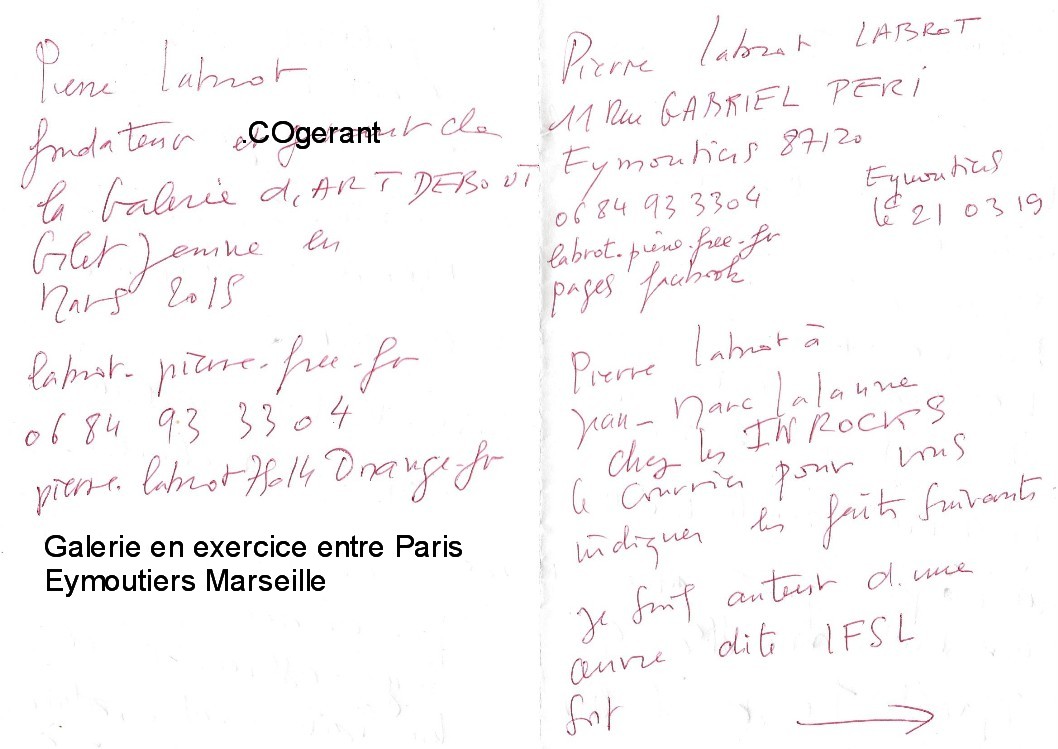 Pierre labrot
fondateur et .COgerant de
la Galerie d,ART DEBOUT
Gilet Jaune en
Mars 2015
labrot. pierre. free. fr
06 84 93 33 04
pierre. labrot 75014 Orange.fr
Galerie en exercice entre Paris
Eymoutiers Marseille
Pierre labrot LABROT
11 Rue GABRIEL PERI
Eymoutiers 87120
06 84 93 3304
labrot. pierre. free. fr
pages facebook
Eymoutiers
le 21 03 19
Pierre labrot à
jean-Marc Lalanne
chez les INROCKS
le courrier pour vous
indiquer les faits suivants
je suis auteur d.une
œuvre dite IFSL
soit